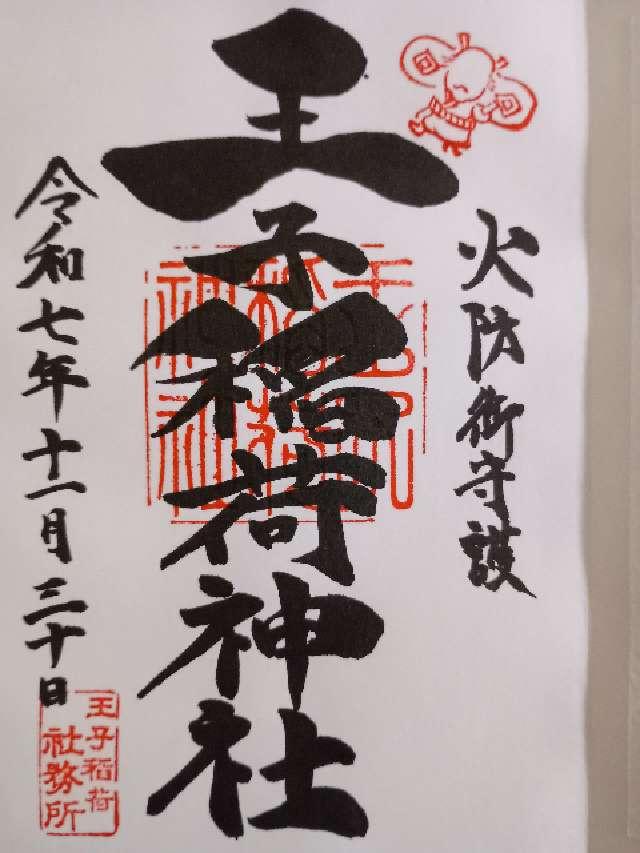 火防御守護
王子稲荷神社
令和七年十一月三十日
王子稲荷
社務所